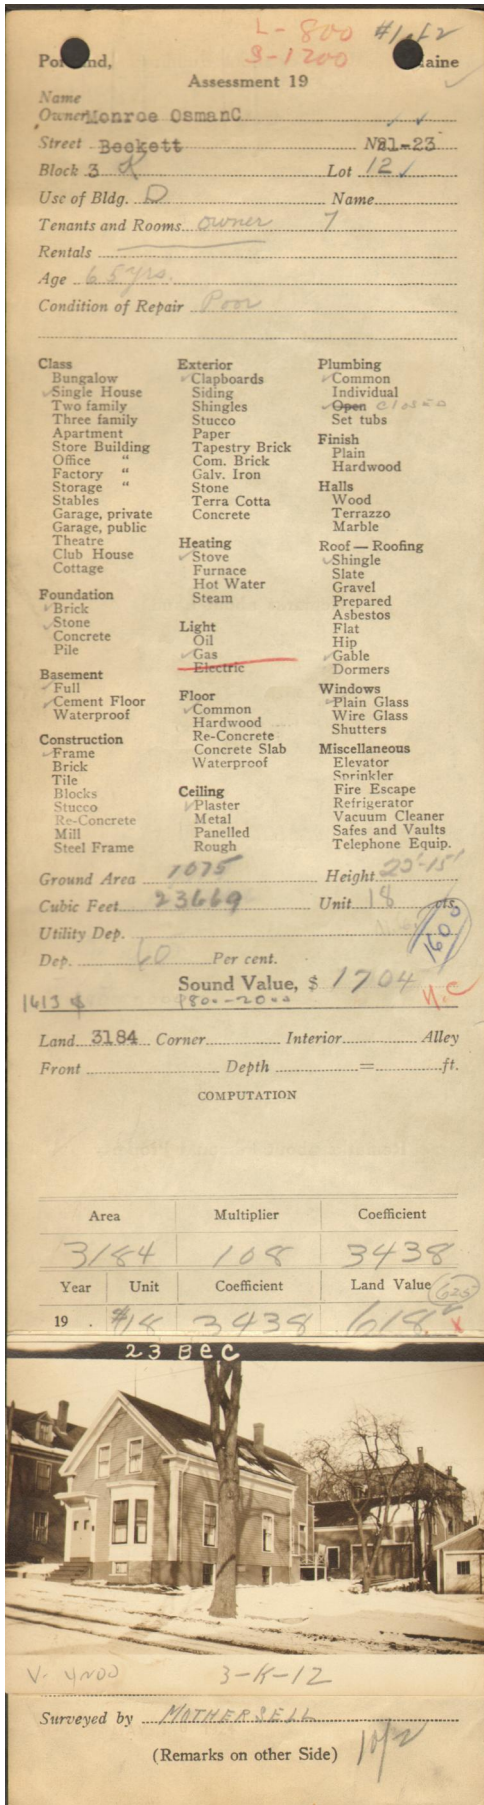 L-800 #1-12
S-1200
Portland, Maine
Assessment 19
Name
Owner Monroe OsmanC
Street Beckett No. 21-23
Block 3 K Lot 12
Use of Bldg. D Name
Tenants and Rooms owner 7
Rentals
Age 65 yrs.
Condition of Repair Poor
Class
Bungalow
Single House
Two family
Three family
Apartment
Store Building
Office "
Factory "
Storage "
Stables
Garage, private
Garage, public
Theatre
Club House
Cottage
Foundation
Brick
Stone
Concrete
Pile
Basement
Full
Cement Floor
Waterproof
Construction
Frame
Brick
Tile
Blocks
Stucco
Re-Concrete
Mill
Steel Frame
Exterior
Clapboards
Siding
Shingles
Stucco
Paper
Tapestry Brick
Com. Brick
Galv. Iron
Stone
Terra Cotta
Concrete
Heating
Stove
Furnace
Hot Water
Steam
Light
Oil
Gas
Electric
Floor
Common
Hardwood
Re-Concrete
Concrete Slab
Waterproof
Ceiling
Plaster
Metal
Panelled
Rough
Plumbing
Common
Individual
Open Closed
Set tubs
Finish
Plain
Hardwood
Halls
Wood
Terrazzo
Marble
Roof — Roofing
Shingle
Slate
Gravel
Prepared
Asbestos
Flat
Hip
Gable
Dormers
Windows
Plain Glass
Wire Glass
Shutters
Miscellaneous
Elevator
Sprinkler
Fire Escape
Refrigerator
Vacuum Cleaner
Safes and Vaults
Telephone Equip.
Ground Area 1075 Height 22'-15'
Cubic Feet 23669 Unit 18 cts.
Utility Dep. 1600
Dep. 60 Per cent.
Sound Value, $ 1704
1613 $ N.C
Land 3184 Corner Interior Alley
Front Depth = ft.
COMPUTATION
Area Multiplier Coefficient
3184 108 3438
Year Unit Coefficient Land Value 625
19 . #18 3438 618 x
23 Bec
3-K-12
Surveyed by MOTHERSELL
(Remarks on other Side) 10/2